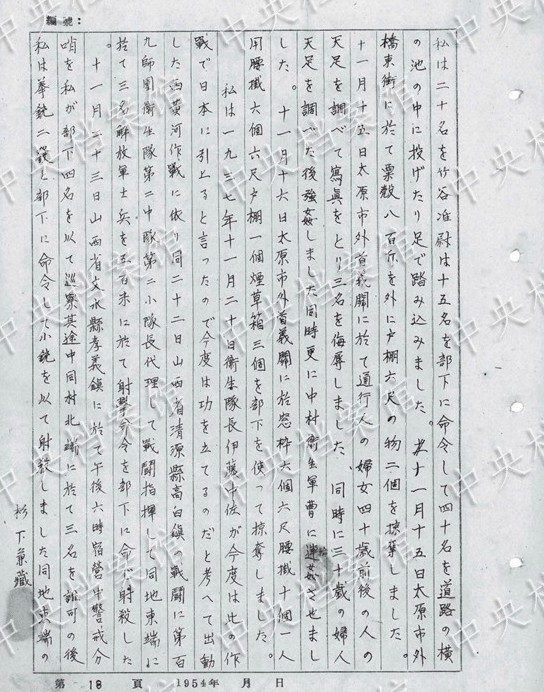 編號：
私は二十名を竹谷准尉は十五名を部下に命令して四十名を道路の横
の池の中に投げたり足で踏み込みました。其十一月十五日太原市外
橋東街に於て粟穀八百斤を外に戸棚六尺の物二個を掠奪しました。
十一月十五日太原市外首義關に於て通行人の婦女四十歳前後の人の
天足を調べて寫真をとり三名を侮辱しました、同時に三十歳の婦人
天足を調べた後強姦しました同時更に中村衛生軍曹に姦させまし
した。十一月十六日太原市外首義關に於窓枠六個六尺腰掛十個一人
用腰掛六個六尺戸棚一個煙草箱三個を部下を使って掠奪しました。
私は一九三七年十一月二十日衛生隊長伊藤中佐が今度は此の作
戰で日本に引上ると言ったので今度は功を立てるのだと考へて出動
した西黄河作戰に依り同二十二日山西省清源縣高白鎮の戰鬪に第百
九師團衛生隊第二中隊第二小隊長代理して戰鬪指揮して同地東端に
於て三名解放軍士兵を五百米に於て射撃命令を部下に命じ射殺した
十一月二十三日山西省文水縣孝義鎮に於て午後六時宿營中警戒分
哨を私が部下四名を以て巡察其途中同村北端に於て三名を誰何の後
私は拳銃二發と部下に命令して小銃を以て射殺しました同地東端の
杉下兼蔵
第 18 頁 1954年 月 日
中央档案馆